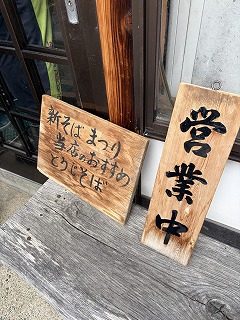 新そばまつり
当店のおすすめ
とりじそば
営業中